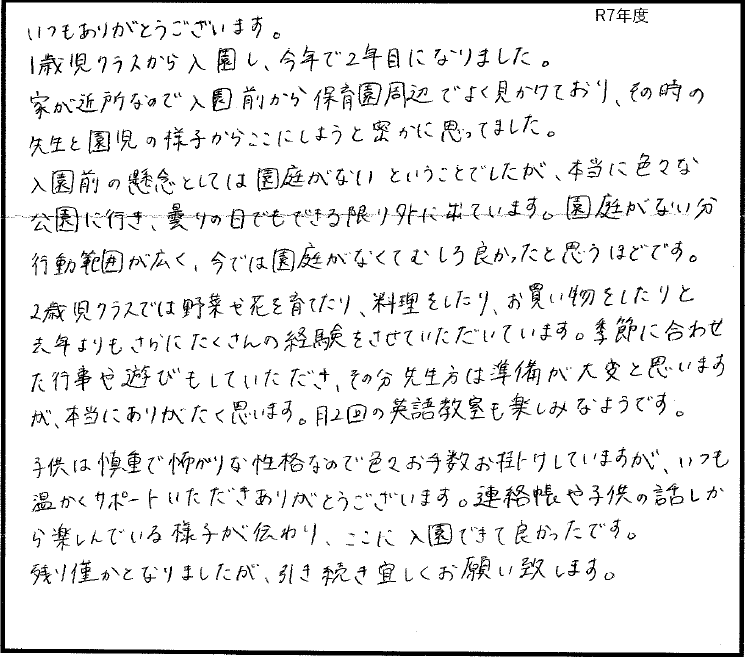 R7年度
いつもありがとうございます。
1歳児クラスから入園し、今年で2年目になりました。
家が近所なので入園前から保育園周辺でよく見かけており、その時の
先生と園児の様子からここにしようと密かに思ってました。
入園前の懸念としては園庭がないということでしたが、本当に色々な
公園に行き、曇りの日でもできる限り外に出ています。園庭がない分
行動範囲が広く、今では園庭がなくてむしろ良かったと思うほどです。
2歳児クラスでは野菜や花を育てたり、料理をしたり、お買い物をしたりと
去年よりもさらにたくさんの経験をさせていただいています。季節に合わせ
た行事や遊びもしていただき、その分先生方は準備が大変と思います
が、本当にありがたく思います。月2回の英語教室も楽しみなようです。
子供は慎重で怖がりな性格なので色々お手数お掛けしていますが、いつも
温かくサポートいただきありがとうございます。連絡帳や子供の話しか
ら楽しんでいる様子が伝わり、ここに入園できて良かったです。
残り僅かとなりましたが、引き続き宜しくお願い致します。